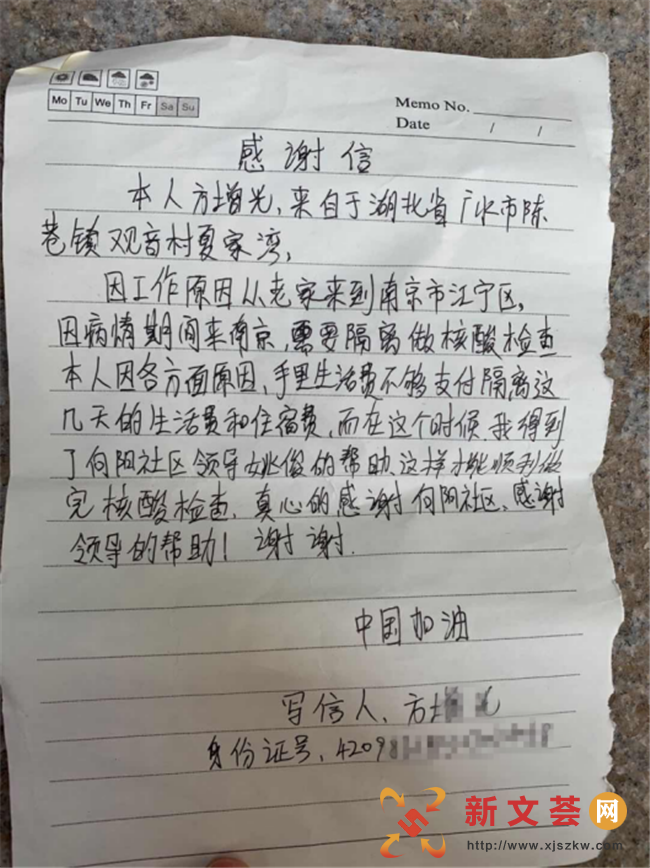 Mo Tu We Th Fr Sa Su
Memo No.
Date / /
感谢信
本人方增光,来自于湖北省广水市陈
巷镇观音村夏家湾,
因工作原因从老家来到南京市江宁区,
因病情期间来南京,需要隔离做核酸检查
本人因各方面原因,手里生活费不够支付隔离这
几天的生活费和住宿费,而在这个时候我得到
了向阳社区领导姚俊的帮助,这样才能顺利做
完核酸检查,真心的感谢向阳社区,感谢
领导的帮助!谢谢.
中国加油
写信人,方
身份证号,4209
新文荟网
http://www.xjszkw.com